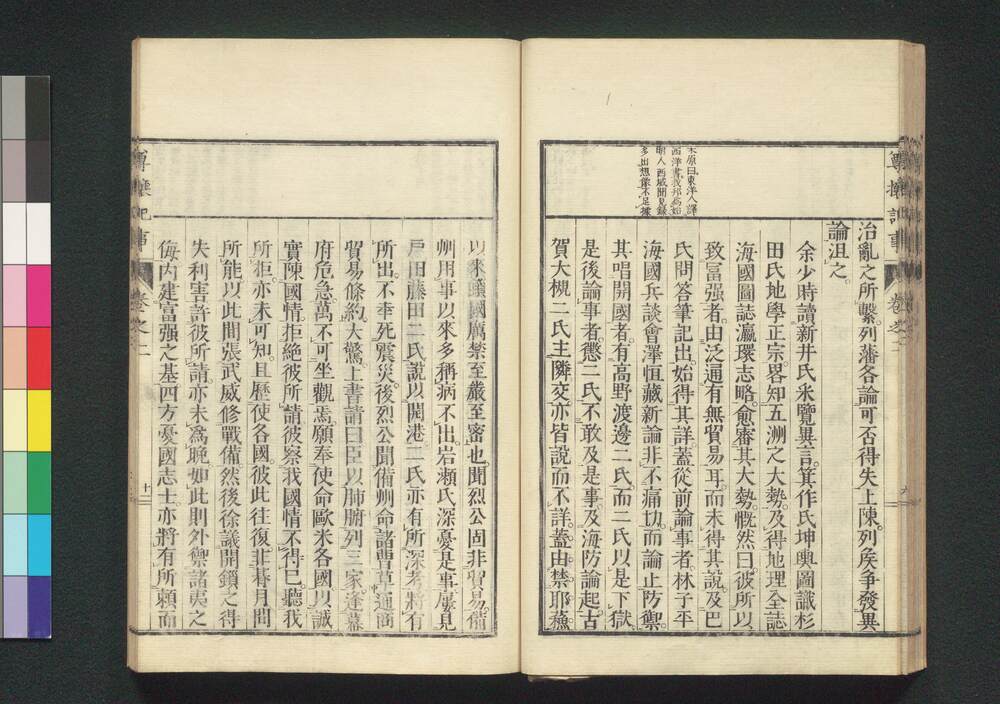 治亂之所繫。列藩各論可否得失上陳。列侯爭發異
論沮之。
余少時讀新井氏釆覽異言。箕作氏坤輿圖識杉
田氏地學正宗。畧知五洲之大勢。及得地理全誌
海國圖誌瀛環志略。愈審其大勢。慨然曰彼所以
致冨强者。由泛通有無貿易耳。而未得其說。及巴
氏問答筆記出。始得其詳。蓋從前論事者。林子平
海國兵談會澤恒藏新論。非不痛切。而論止防禦。
其唱開國者。有高野渡邊二氏。而二氏以是下獄
是後論事者。懲二氏。不敢及是事。及海防論起。古
賀大槻二氏主隣交。亦皆說而不詳。蓋由禁耶蘓。
原曰東洋人譯
西洋書我邦爲始
明人西域聞見錄
多出想像不足據
尊攘記事
卷之二
以來鎖國厲禁至嚴至密也聞烈公固非貿易。備
州用事以來多稱病不出。岩瀨氏深憂是事屢見
戶田藤田二氏說以開港二氏亦有所深考將有
所出。不幸死震災。後烈公聞備州命諸曹草通商
貿易條約。大驚。上書請曰臣以肺腑列三家逢幕
府危急萬不可坐觀焉。願奉使命歐米各國以誠
實陳國情拒絕彼所請彼察我國情不得已。聽我
所拒。亦未可知。且歷使各國。彼此往復非朞月間
所能以此間張武威修戰備。然後徐議開鎖之得
失利害許彼所請。亦未爲晩如此則外禦諸夷之
侮内建富强之基四方憂國志士亦將有所賴而
尊攘記事
卷之二
十一